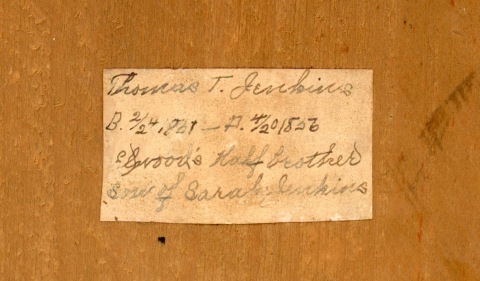 Thomas T. Jenkins
B. 2/24, 1831 — D. 4/20 1856
Elwood's Half brother
Son of Sarah Jenkins